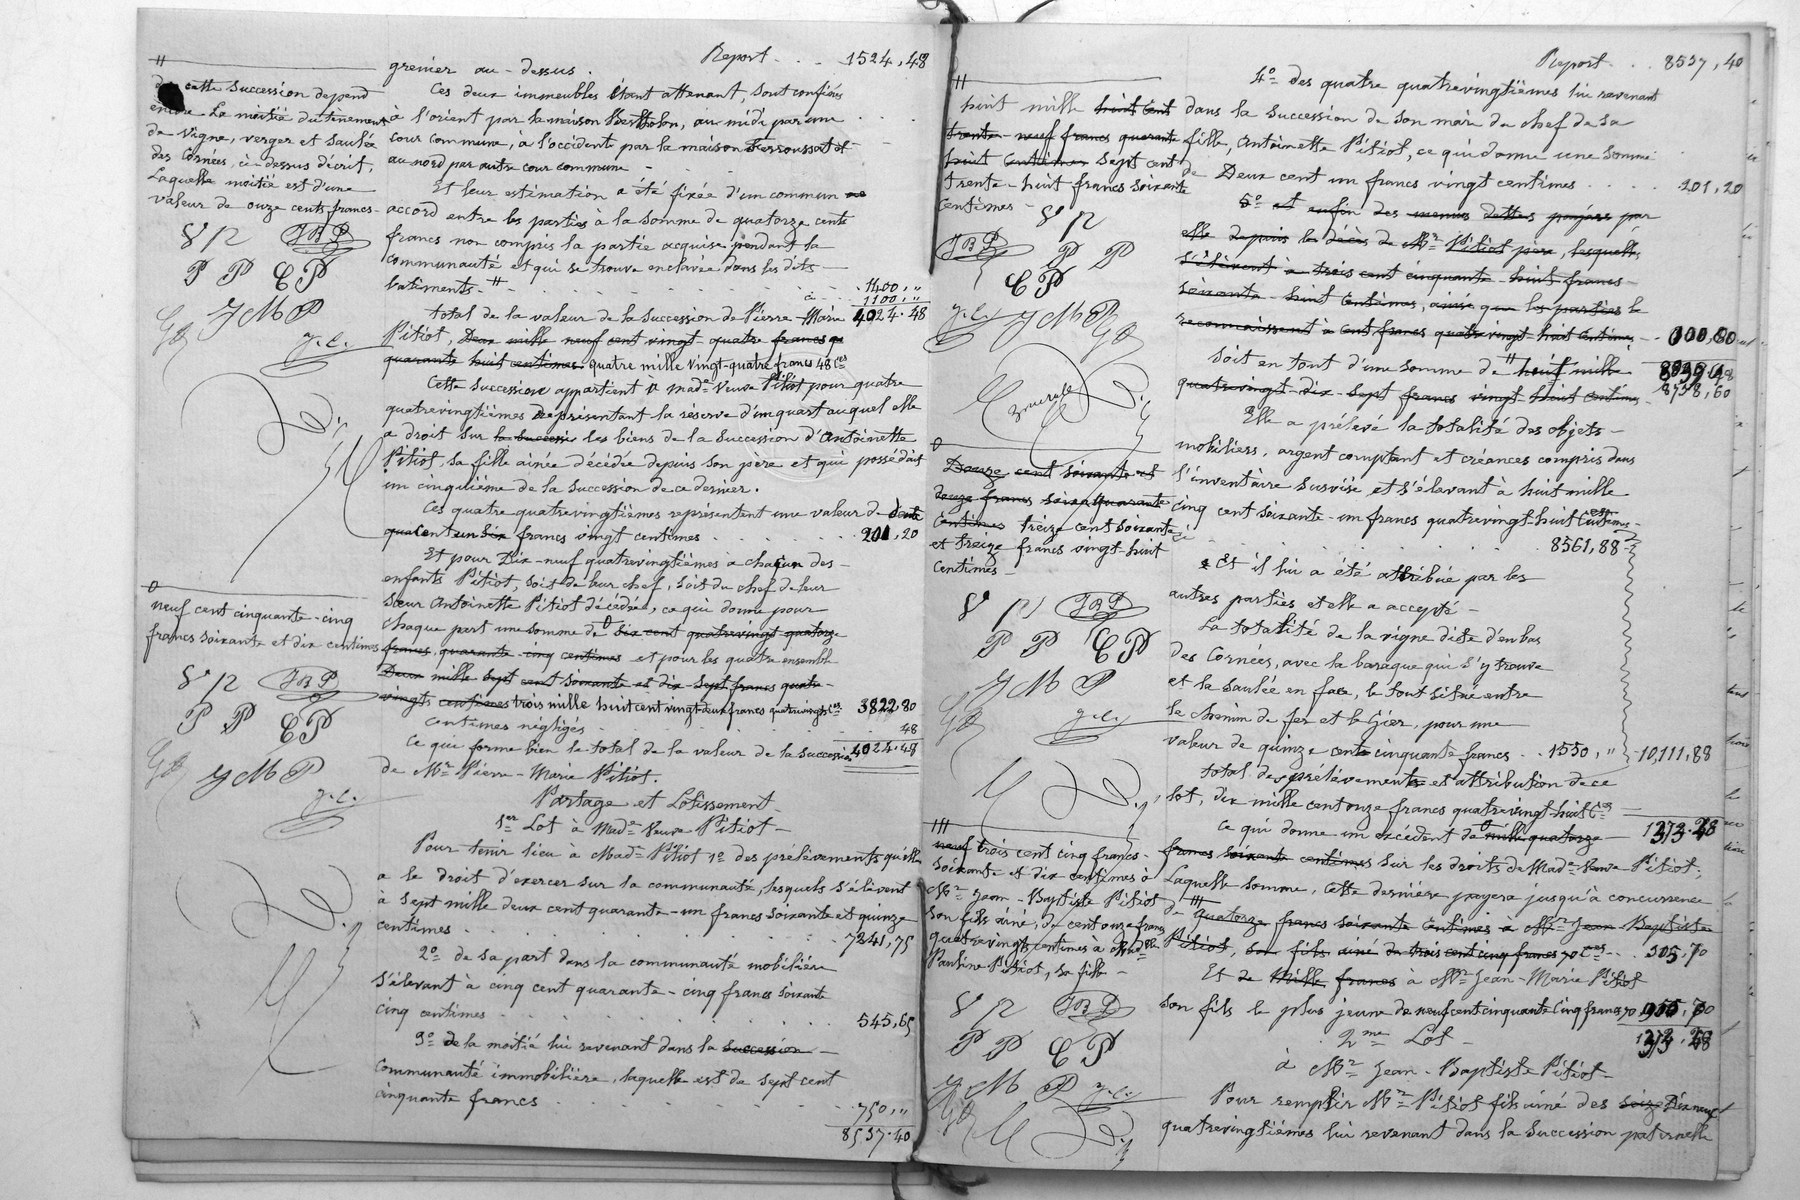 Report . . . 1524,48
grenier au-dessus.
Ces deux immeubles étant attenant, sont confinés
à l'orient par la maison Berthelon, au midi par une
cour commune, à l'occident par la maison et
au nord par autre cour commune -
Et leur estimation a été fixée d'un commun
accord entre les parties à la somme de quatorze cents
francs non compris la partie acquise pendant la
communauté et qui se trouve enclavée dans les dits
batiments. " 1400,"
1100,"
total de la valeur de la succession de Pierre-Marie 4024.48
Pitiot, Deux mille neuf cent vingt quatre francs
quarante huit centimes quatre mille vingt-quatre francs 48 ces
Cette succession appartient à made veuve Pitiot pour quatre
quatrevingtièmes représentant la réserve d'un quart auquel elle
a droit sur la successi les biens de la succession d'Antoinette
Pitiot, sa fille ainée décédée depuis son père et qui possédait
un cinquième de la succession de ce dernier.
Ces quatre quatrevingtièmes représentent une valeur de
francs vingt centimes 201,20
Et pour Dix-neuf quatrevingtièmes a chacun des
enfants Pitiot, soit de leur chef, soit du chef de leur
sœur Antoinette Pitiot décédée, ce qui donne pour
chaque part une somme de o six cent quatrevingt quatorze
francs, quarante cinq centimes et pour les quatre ensemble
Deux mille sept cent soixante et dix-sept francs quatre-
vingts centimes trois mille huit cent vingt-deux francs quatrevingts ces 3822,80
Centimes négligés 48
Ce qui forme bien le total de la valeur de la succession 4024.48
de Mr Pierre-Marie Pitiot.
Partage et Lotissement
1er Lot à made Veuve Pitiot -
Pour tenir lieu à Made Pitiot 1o des prélèvements qu'elle
a le droit d'exercer sur la communauté, lesquels s'élèvent
à sept mille deux cent quarante-un francs soixante et quinze
centimes 7241,75
2o de sa part dans la communauté mobilière
s'élevant à cinq cent quarante-cinq francs soixante
cinq centimes 545,65
3o de la moitié lui revenant dans la succession
communauté immobilière, laquelle est de sept cent
cinquante francs 750,"
8537.40
"
de cette succession depend
encore la moitié du tènement
de vigne, verger et saulée
des Cornées, ci-dessus décrit,
Laquelle moitié est d'une
valeur de onze cents francs -
JBP
P P CP
JMP
o
neuf cent cinquante-cinq
francs soixante et dix centimes
JBP
P P CP
JMP
Report . . 8537,40
4o des quatre quatrevingtièmes lui revenant
dans la succession de son mari du chef de sa
fille, Antoinette Pitiot, ce qui donne une somme
de Deux cent un francs vingt centimes 201,20
5o et enfin des menues dettes payées par
elle depuis le décès de Mr Pitiot père, lesquelles
s'élèvent à trois cent cinquante huit francs
soixante-huit centimes, ainsi que les parties le
reconnaissent à cent francs quatre vingt huit centimes
Soit en tout d'une somme de " huit mille
quatrevingt-dix-sept francs vingt huit centimes 8738,60
Elle a prélevé la totalité des objets
mobiliers, argent comptant et créances compris dans
l'inventaire susvisé et s'élevant à huit mille
cinq cent soixante-un francs quatrevingt-huit centimes -
ci 8561,88
Et il lui a été attribué par les
autres parties et elle a accepté -
La totalité de la vigne dite d'en bas
des Cornées, avec la baraque qui s'y trouve
et la saulée en face, le tout situé entre
le chemin de fer et le Gier, pour une
valeur de quinze cent cinquante francs . . 1550," 10,111,88
total des prélèvements et attribution de ce
lot, dix mille cent onze francs quatrevingt-huit ces
Ce qui donne un excédent de o mille quatorze 1373.28
francs soixante centimes sur les droits de Made Veuve Pitiot,
Laquelle somme, cette dernière payera jusqu'à concurrence
de "' quatorze francs soixante centimes à Mr Jean Baptiste
Pitiot, son fils ainé de trois cent cinq francs 70 ces . . 305.70
Et de mille francs à Mr Jean-Marie Pitiot
son fils le plus jeune de neuf cent cinquante cinq francs 70 955,70
2me Lot -
à Mr Jean-Baptiste Pitiot -
Pour remplir Mr Pitiot fils ainé des seize Dix neuf
quatrevingtièmes lui revenant dans la succession paternelle
"
huit mille huit cent
trente-neuf francs quarante
huit centimes sept cent
trente-huit francs soixante
centimes -
JBP
P P
CP
JMP
o
Douze cent soixante et
douze francs soixante quarante
centimes treize cent soixante
et treize francs vingt-huit
centimes -
JBP
P P CP
JMP
"'
neuf trois cent cinq francs -
soixante et dix centimes à
Mr Jean-Baptiste Pitiot
son fils ainé, de cent onze francs
quatrevingts centimes à Madelle
Pauline Pitiot, sa fille -
JBP
P P CP
JMP